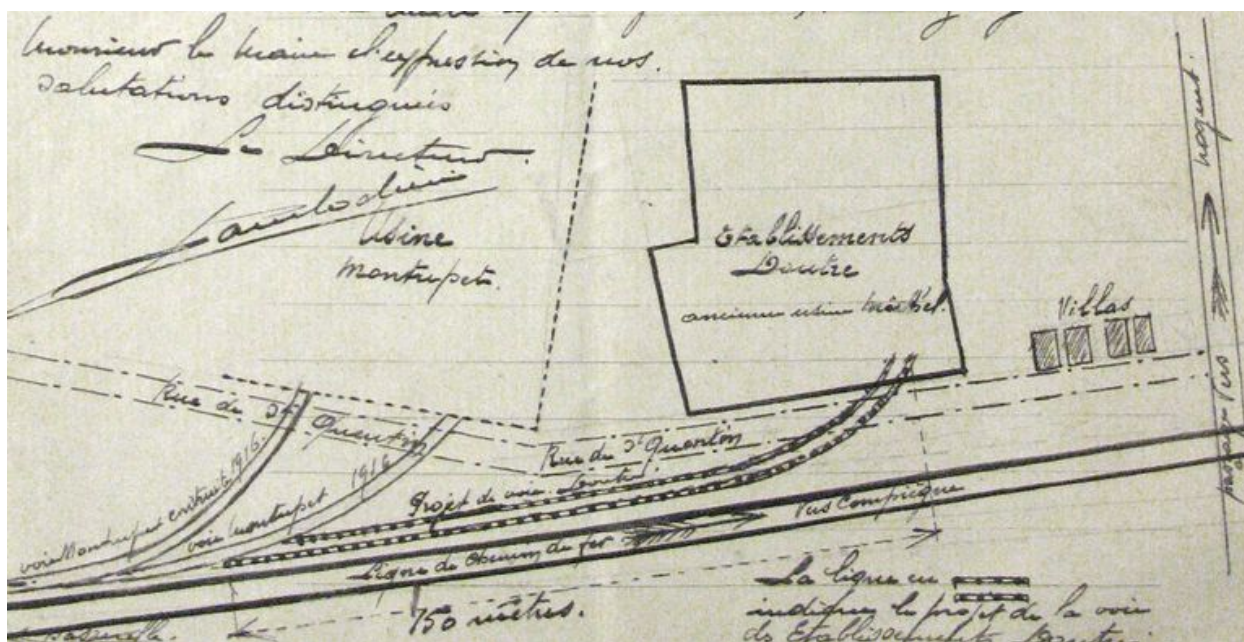 Monsieur le Maire l'expression de nos.
salutations distinguées
Le Directeur.
Usine
Montupet.
Etablissements
Doutre
ancienne usine
Villas
passage vers Nogent.
Rue de St Quentin
Rue de St Quentin
voie Montupet construite 1916.
voie Montupet 1916
Projet de voie Doutre
Ligne de Chemin de fer
Vers Compiègne
150 mètres.
passerelle.
La ligne en
indique le projet de la voie
des Etablissements Doutre